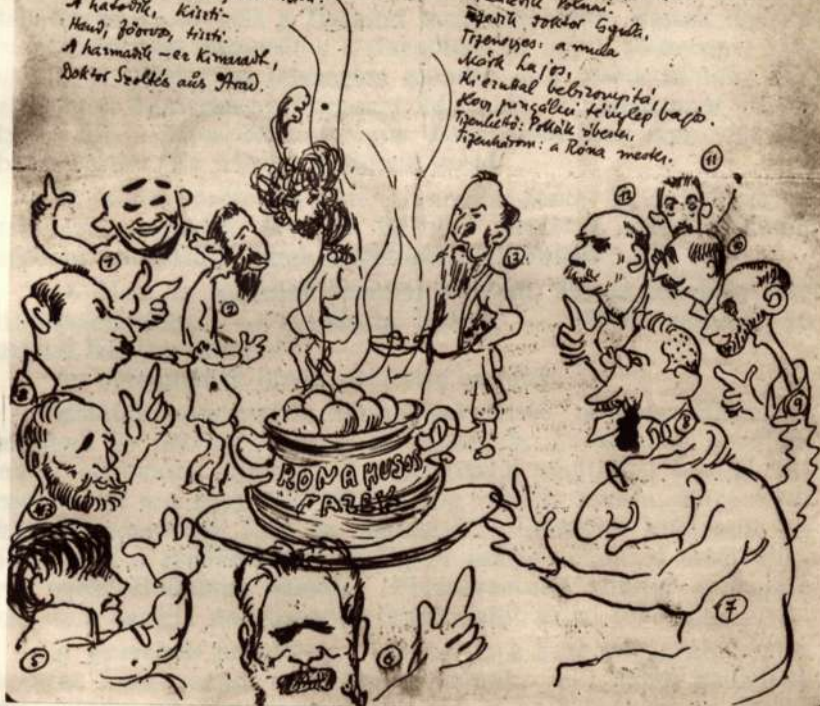 A hatodik, Kiszti-
Hand, főorvos, tiszti.
A harmadik – ez kimaradt,
Doktor Szoltés aus Arad.
Polnai.
doktor Gyula,
Tizenegyes: a mula
Márk Lajos,
Ki ezuttal bebizonyitá,
Hogy pingálni tényleg bajos.
Tizenkettő: Pollák óbester,
Tizenhárom: a Róna mester.
11
12
10
1
2
13
3
9
8
4
RONA HUSOS
FAZÉK
7
5
6